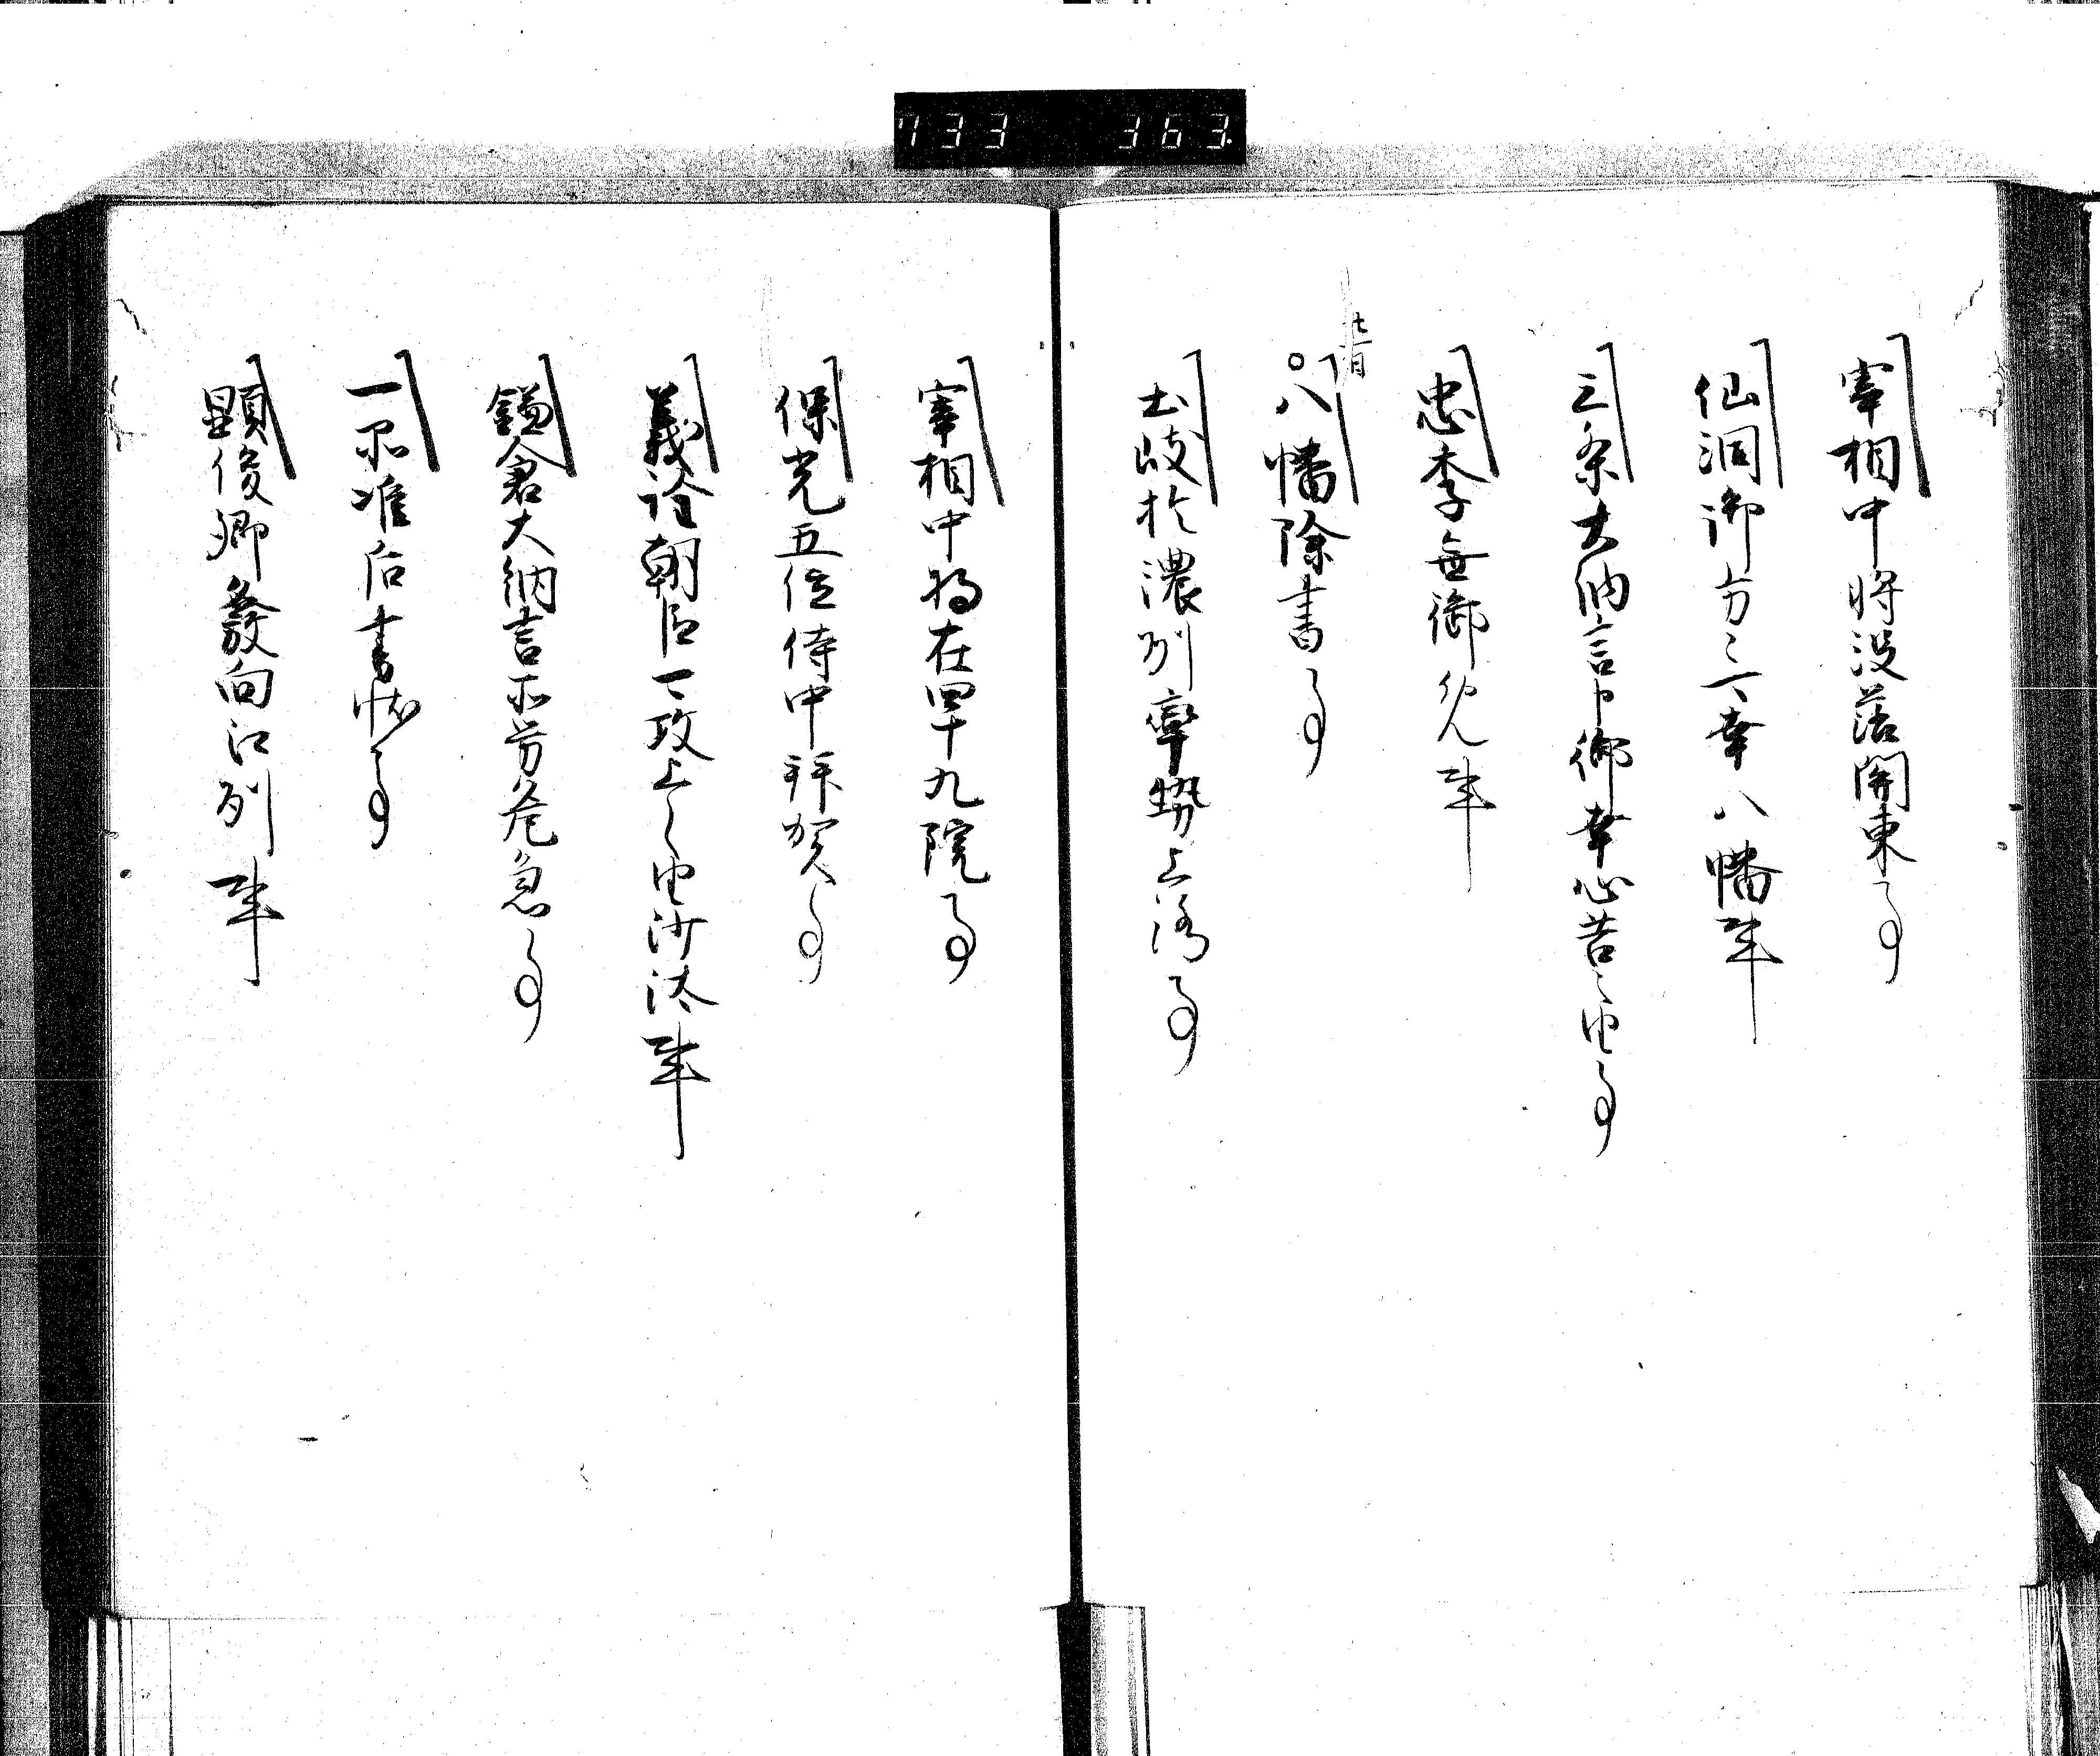 733 363
宰相中将没落関東事
仙洞御方々六幸八幡事
三条大納言申御幸心苦之由事
忠季無御免事
七日
○八幡除書事
土岐於濃州率勢上洛事
宰相中将在四十九院事
保光五位侍中拝賀事
義詮朝臣可攻上之由沙汰事
鎌倉大納言所労危急事
一品准后書状事
顕俊卿発向江州事